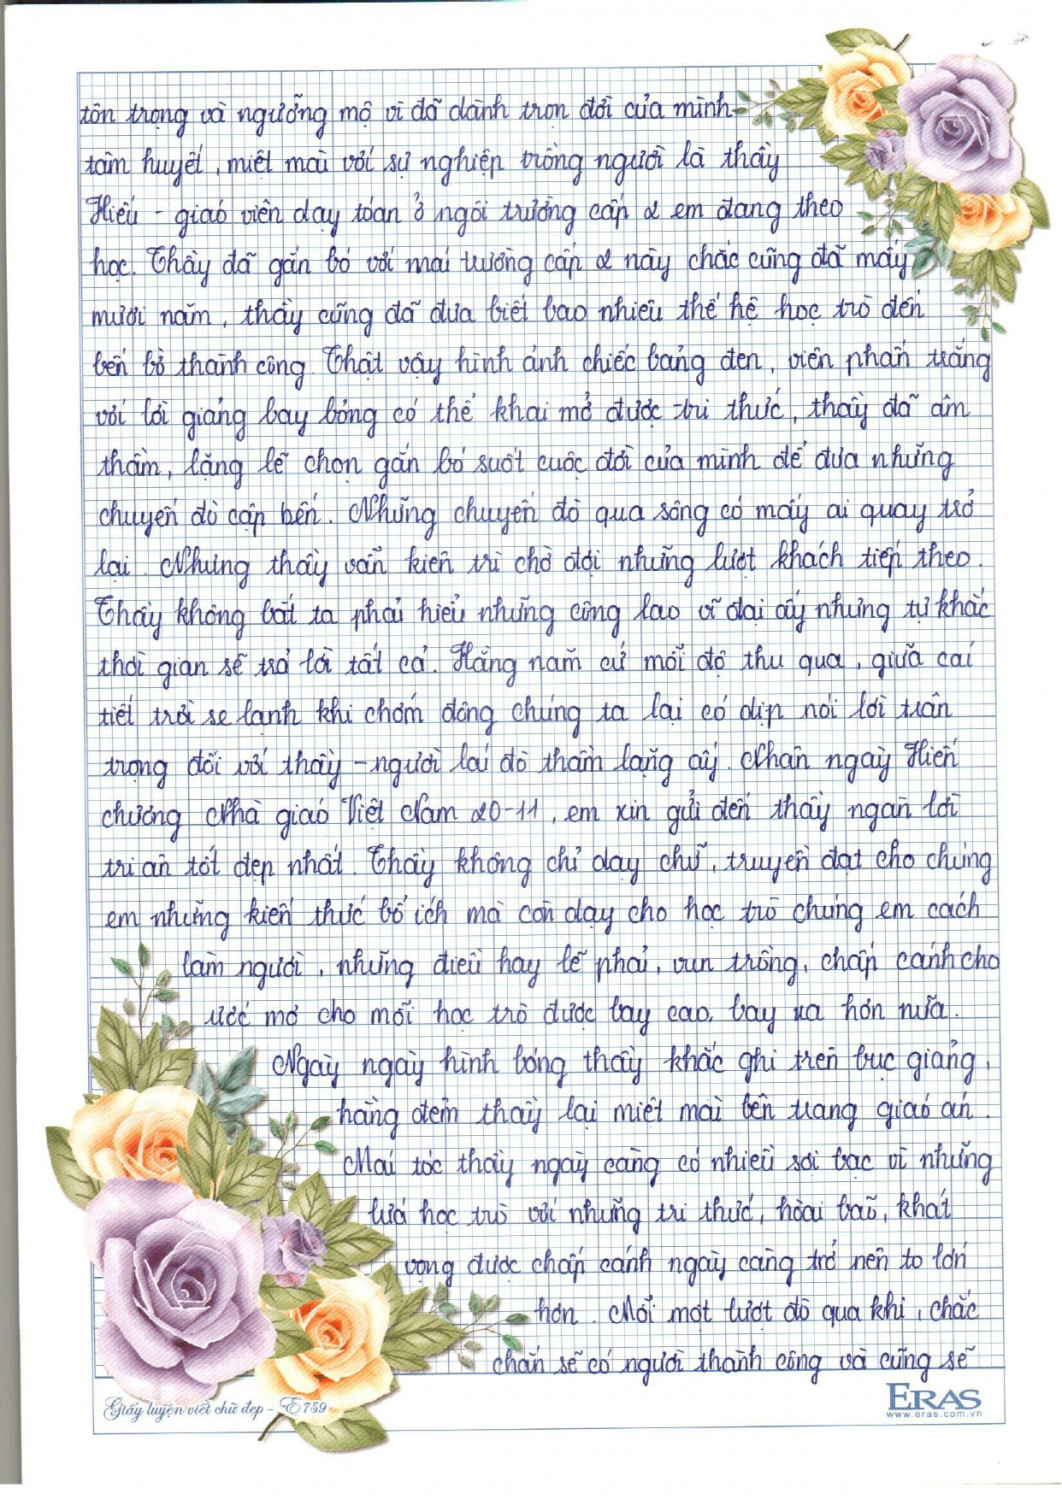 tôn trọng và ngưỡng mộ vì đã dành trọn đời của mình
tâm huyết, miệt mài với sự nghiệp trồng người là thầy
Hiếu - giáo viên dạy toán ở ngôi trường cấp 2 em đang theo
học. Thầy đã gắn bó với mái trường cấp 2 này chắc cũng đã mấy
mươi năm, thầy cũng đã đưa biết bao nhiêu thế hệ học trò đến
bến bờ thành công. Thật vậy hình ảnh chiếc bảng đen, viên phấn trắng
với lời giảng bay bổng có thể khai mở được tri thức, thầy đã âm
thầm, lặng lẽ chọn gắn bó suốt cuộc đời của mình để đưa những
chuyến đò cập bến. Những chuyến đò qua sông có mấy ai quay trở
lại. Nhưng thầy vẫn kiên trì chờ đợi những lượt khách tiếp theo.
Thầy không bắt ta phải hiểu những công lao vĩ đại ấy nhưng tự khắc
thời gian sẽ trả lời tất cả. Hằng năm cứ mỗi độ thu qua, giữa cái
tiết trời se lạnh khi chớm đông chúng ta lại có dịp nói lời trân
trọng đối với thầy - người lái đò thầm lặng ấy. Nhân ngày Hiến
chương Nhà giáo Việt Nam 20-11, em xin gửi đến thầy ngàn lời
tri ân tốt đẹp nhất. Thầy không chỉ dạy chữ, truyền đạt cho chúng
em những kiến thức bổ ích mà còn dạy cho học trò chúng em cách
làm người, những điều hay lẽ phải, vun trồng, chắp cánh cho
ước mơ cho mỗi học trò được bay cao, bay xa hơn nữa.
Ngày ngày hình bóng thầy khắc ghi trên bục giảng,
hằng đêm thầy lại miệt mài bên trang giáo án.
Mái tóc thầy ngày càng có nhiều sợi bạc vì những
lứa học trò với những tri thức, hoài bão, khát
vọng được chắp cánh ngày càng trở nên to lớn
hơn. Mỗi một lượt đò qua khi, chắc
chắn sẽ có người thành công và cũng sẽ
Giấy luyện viết chữ đẹp - E759
ERAS
www.eras.com.vn